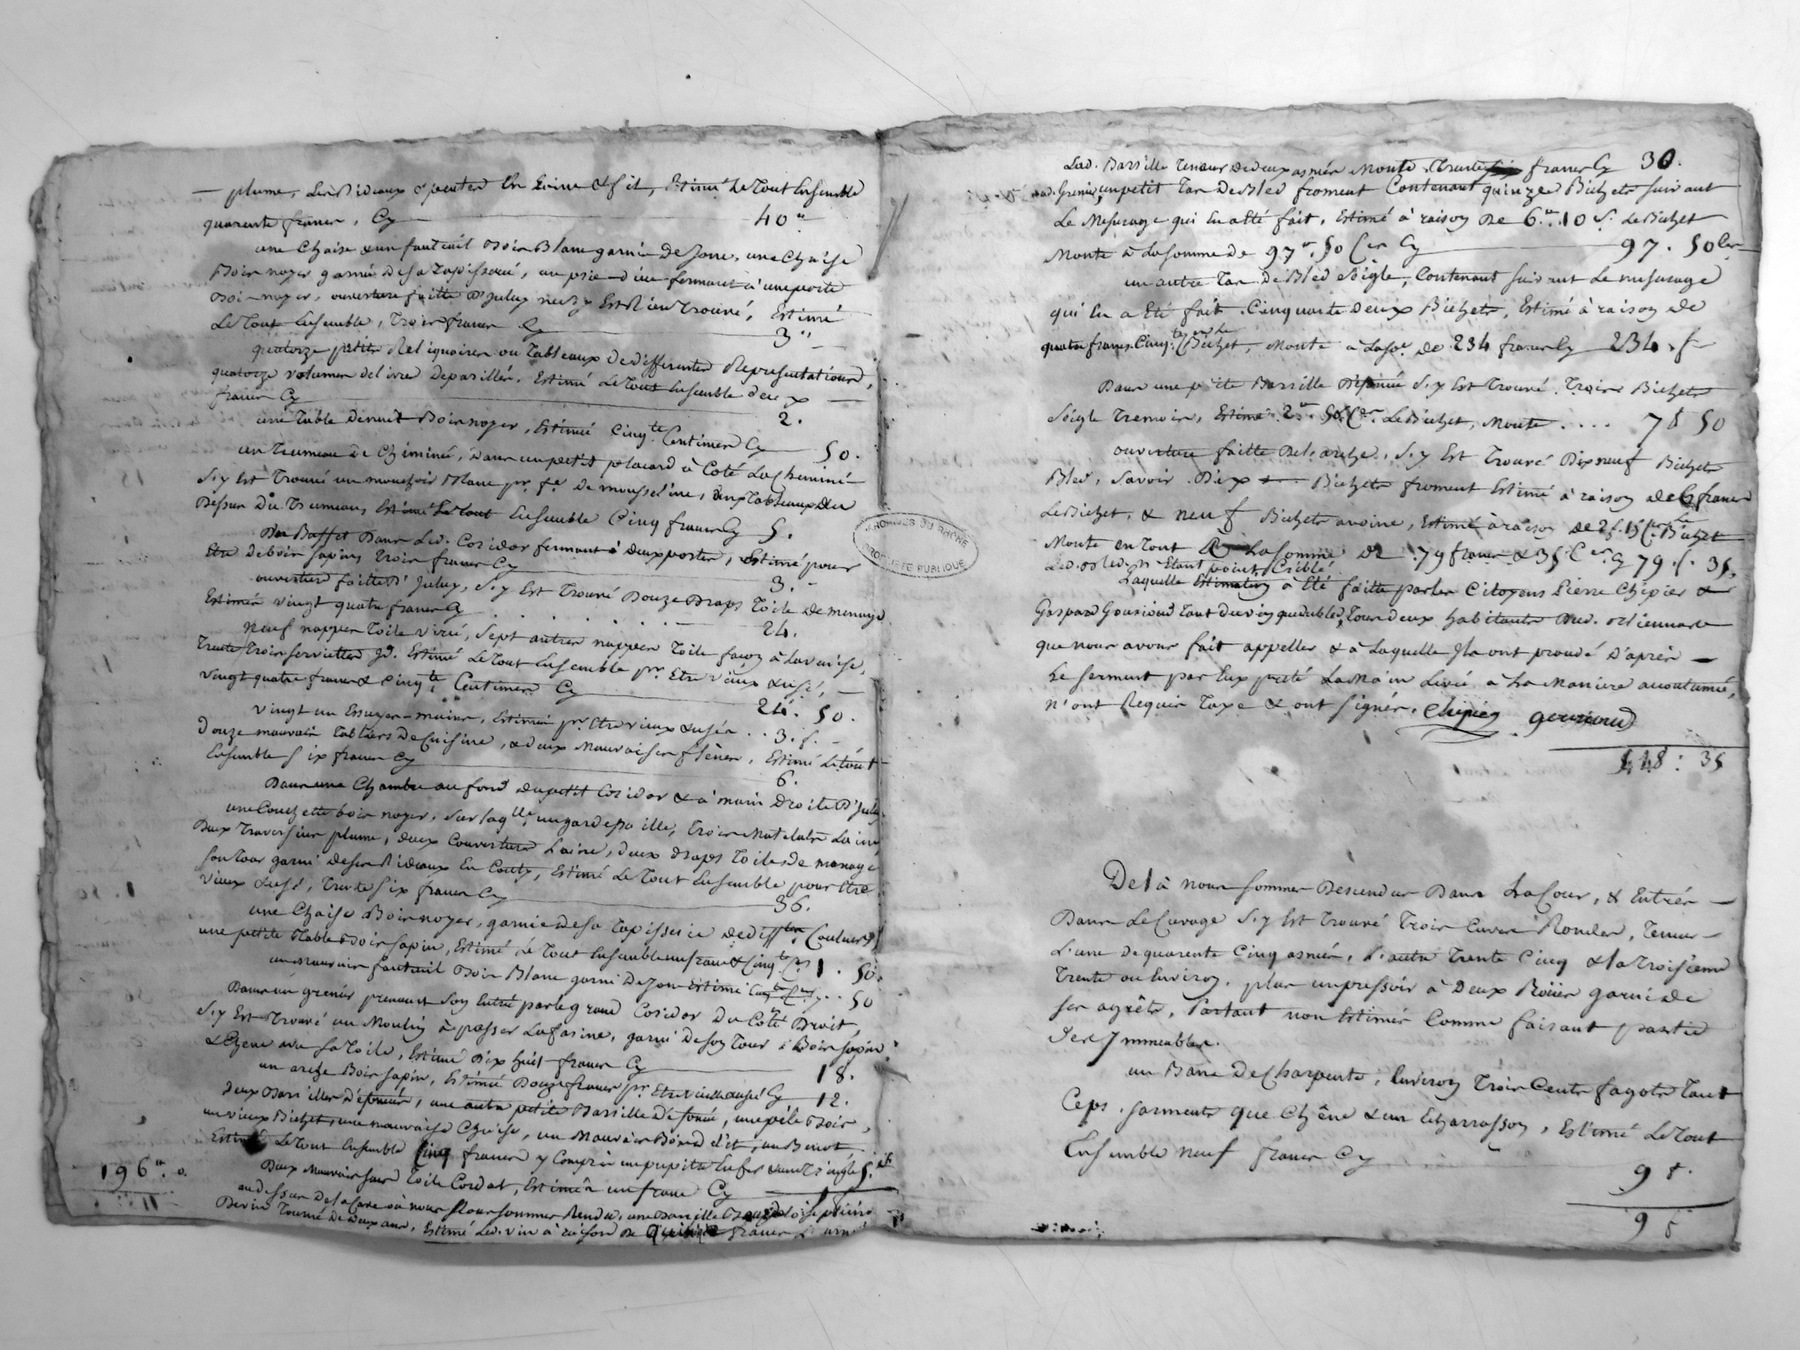 plume, Les Rideaux Pentes En Laine & fil, Estimé Le Tout Ensemble
quarente francs, Cy 40"
une Chaise & un fauteuil Bois Blanc garnie de Jonc, une Chaise
Bois noyer garnie de sa Tapisserie, un prie-dieu fermant à une porte
Bois noyer, ouverture faitte D'Iceluy ne s'y Est Rien Trouvé, Estimé
Le Tout Ensemble, Trois francs Cy 3"
quatorze petits Reliquaires ou Tableaux De differentes Representations,
quatorze volumes de livre Depareillés, Estimé Le Tout Ensemble deux
francs Cy 2.
une Table De nuit Bois noyer, Estimée Cinqte Centimes Cy 50.
un Trumeau de Cheminée, Dans un petit placard à Coté La Cheminée
S'y Est Trouvé un mouchoir Blanc de mousseline, deux Tableaux au
Dessus Du Trumeau, Estimé Le Tout Ensemble Cinq francs Cy 5.
Un Buffet Dans Led. Coridor fermant à deux portes, Estimé pour
Etre de bois sapin, trois francs Cy 3.
ouverture faitte D'Iceluy, S'y Est Trouvé Douze Draps Toile de menage
Estimés vingt quatre francs Cy 24.
Neuf nappes Toile , Sept autres nappes Toile façon à La
Trente Trois serviettes Id. Estimé Le Tout Ensemble pr Etre vieux & usé,
vingt quatre francs & Cinqte Centimes Cy 24. 50.
vingt un Essuyes-mains, Estimés pr Etre vieux & usés .. 3. f.
Douze mauvais Tabliers De Cuisine, & deux Mauvaises , Estimé Le tout
Ensemble Six francs Cy 6.
Dans une Chambre au fond du petit Coridor & à main droite D'Iceluy
une Couchette bois noyer, Sur laqlle un gardepaille, trois Matelats Laine,
Deux Traversiers plume, deux Couvertures Laine, deux draps Toile de menage
son Tour garni de ses Rideaux En , Estimé Le Tout Ensemble pour Etre
vieux & usé, Trente Six francs Cy 36.
une Chaise Bois noyer, garnie de sa Tapisserie de Difftes Couleurs
une petite Table Bois sapin, Estimé Le Tout Ensemble un franc & Cinqte Ces 1. 50.
un mauvais fauteuil Bois Blanc garni De Jonc Estimé Cinqte Ces Cy.. 50
Dans un grenier prenant Son Entré par le grand Coridor Du Côté Droit,
S'y Est Trouvé un Moulin à passer La farine, garni De son Tour Bois sapin
& Chene avec sa Toile, Estimé Dix huit francs Cy 18.
un arche Bois sapin, Estimée Douze francs pr Etre vieille & usée Cy 12.
deux Barsilles Défoncées, une autre petite Barsille Défoncée, une pêle Bois,
un vieux Bichet, une mauvaise Chaise, un Mauvais Bois de lit, un
Estimé Le Tout Ensemble Cinq francs y Compris un pupitre En fer 5. f
Deux Mauvais sacs Toile Cordat, Estimés un franc Cy
196" 0.
au dessus De la Cave où nous Nous Sommes Rendu, une Barsille
De vin Tourné de deux ans, Estimé Led. vin à raison de francs L'anée
Lad. Barsille Teneur de deux asnées Monte Trente francs Cy 30.
aud. Grenier, un petit Tas De Bled froment Contenant quinze Bichets Suivant
Le Mesurage qui En a Eté fait, Estimé à raison De 6" 10 S. Le Bichet
Monte à La Somme de 97" 50 Ces Cy 97. 50 Ces
un autre Tas De Bled Seigle, Contenant Suivant Le mesurage
qui En a Eté fait Cinquante Deux Bichets, Estimé à raison De
quatre francs Cinqte Ces Le Bichet, Monte à La Se de 234 francs Cy 234. f
Dans une pte Barsille Défoncée S'y Est Trouvé Trois Bichets
Seigle Tremois, Estimé 2" 50 Ces Le Bichet, Monte .... 7 f 50
ouverture faitte De L'arche, S'y Est Trouvé Dix neuf Bichets
Bled, Savoir Dix Bichets froment Estimé à raison de 6 francs
Le Bichet, & neuf Bichets avoine, Estimé à raison de 2 f. 15 Ces Le Bichet
Monte En Tout La Somme De 79 francs & 35 Ces Cy 79. f. 35.
Led. Bled n'Etant point Criblé.
Laquelle Estimation a Eté faitte par les Citoyens Pierre Chipier &
Gaspard Gourioud Tant du vin que du bled, Tous deux habitants Dud. 
que nous avons fait appeller & à Laquelle Ils ont procedé D'après
Le Serment par Eux preté La Main Levée à La Maniere acoutumée,
N'ont Requis Taxe & ont Signés. Chipier gourioud
448 : 35
De là nous Sommes Descendus Dans La Cour, & Entrés
Dans Le Cuvage S'y Est Trouvé Trois Cuves Rondes, Tenus
L'une de quarente Cinq asnées, L'autre Trente Cinq & La Troisieme
Trente ou Environ, plus un pressoir à Deux Roües garni de
ses agrêts, Partant non Estimés Comme faisant partie
des Immeubles.
un Banc De Charpente, Environ Trois Cents fagots Tant
Ceps, Sarments que Chêne & un Echarasson, Estimé Le Tout
Ensemble neuf francs Cy
9 f.
9 f
ARCHIVES DU RHÔNE
PROPRIÉTÉ PUBLIQUE